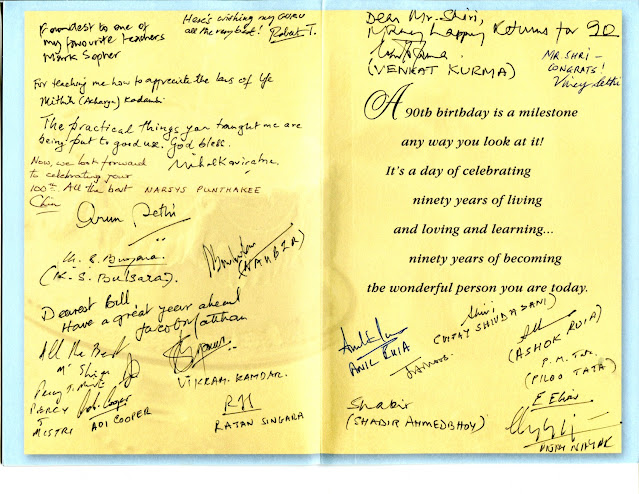 Fondest to one of
my favourite teachers
Mark Sopher
Here's wishing my GURU
all the very best! Robert T.
For teaching me how to appreciate the laws of life
Mithila (Acharya) Kadambi
The practical things you taught me are
being put to good use. God bless.
Now, we look forward
to celebrating your
100th. All the best NARSYS PUNTHAKEE
Chin
Arun Sethi
K. S. Bunsara
(K. S. Bulsara).
Dearest Bill,
Have a great year ahead
Jacob Matthan
All the Best
PERCY
J
MISTRI
ADI COOPER
VIKRAM. KAMDAR.
RATAN SINGARA
Dear Mr. Shiri,
Many happy Returns for 90
(VENKAT KURMA)
MR. SHRI -
CONGRATS!
Vinay Sethi
A 90th birthday is a milestone
any way you look at it!
It's a day of celebrating
ninety years of living
and loving and learning...
ninety years of becoming
the wonderful person you are today.
ANIL RUIA
(VIJAY SHIVDASANI)
(ASHOK RUIA)
P. M. Tata
(PILOO TATA)
Shabir
(SHABIR AHMEDBHOY)
F. Elias
VIJAY NAYAK